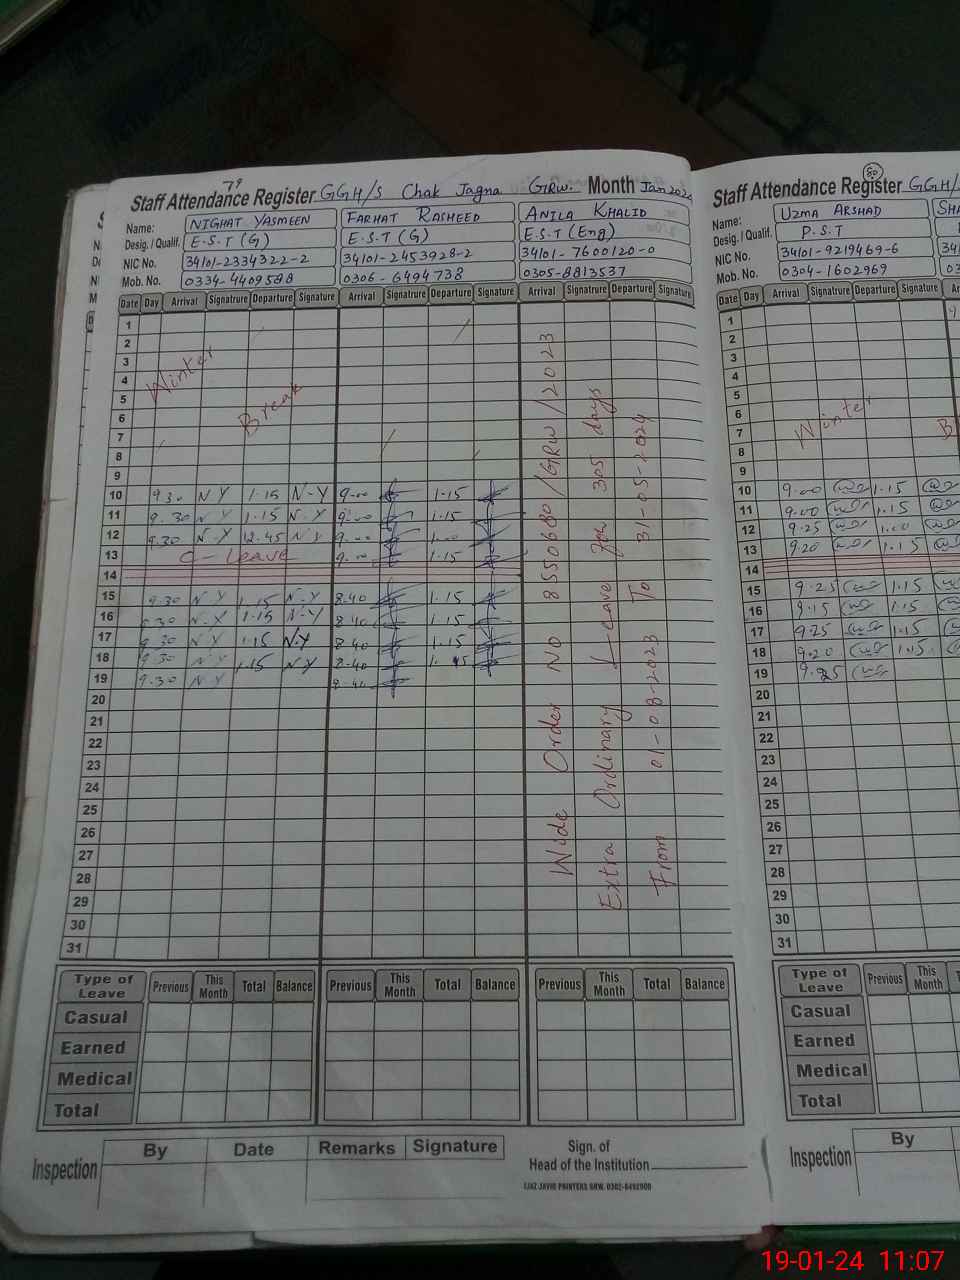 79
Staff Attendance Register GGH/S Chak Jagna GRW. Month Jan 2024
Name: NIGHAT YASMEEN FARHAT RASHEED ANILA KHALID
Desig. / Qualif. E.S.T (G) E.S.T (G) E.S.T (Eng)
NIC No. 34101-2334322-2 34101-2453928-2 34101-7600120-0
Mob. No. 0334-4409588 0306-6494738 0305-8813537
Date Day Arrival Signature Departure Signature Arrival Signature Departure Signature Arrival Signature Departure Signature
1
2
3
4
5
6
7
8
9
Winter
Break
10 9.30 N Y 1.15 N-Y 9-00 1.15
11 9.30 N-Y 1.15 N-Y 9.00 1.15
12 9.30 N-Y 12.45 N Y 9.00 1.00
13 C-Leave 9.00 1.15
14
15 9.30 N Y 1.15 N-Y 8.40 1.15
16 9.30 N-Y 1.15 N-Y 8.40 1.15
17 9.30 N-Y 1.15 N.Y 8.40 1.15
18 9.30 N Y 1.15 N-Y 8-40 1.15
19 9.30 N-Y 8.40
20
21
22
23
24
25
26
27
28
29
30
31
Wide Order No 8550680/GRW/2023
Extra Ordinary Leave for 305 days
From 01-08-2023 To 31-05-2024
Type of Leave Previous This Month Total Balance Previous This Month Total Balance Previous This Month Total Balance
Casual
Earned
Medical
Total
Inspection By Date Remarks Signature
Sign. of
Head of the Institution
IJAZ JAVID PRINTERS GRW. 0302-6492909
80
Staff Attendance Register GGH/
Name: UZMA ARSHAD SHA
Desig. / Qualif. P.S.T
NIC No. 34101-9219469-6 3410
Mob. No. 0304-1602969 030
Date Day Arrival Signature Departure Signature
1
2
3
4
5
6
7
8
9
Winter
B
10 9.00 1.15
11 9.00 1.15
12 9.25 1.00
13 9.20 1.15
14
15 9.25 1.15
16 9.15 1.15
17 9.25 1.15
18 9.20 1.15
19 9.25
20
21
22
23
24
25
26
27
28
29
30
31
Type of Leave Previous This Month
Casual
Earned
Medical
Total
Inspection By
19-01-24 11:07